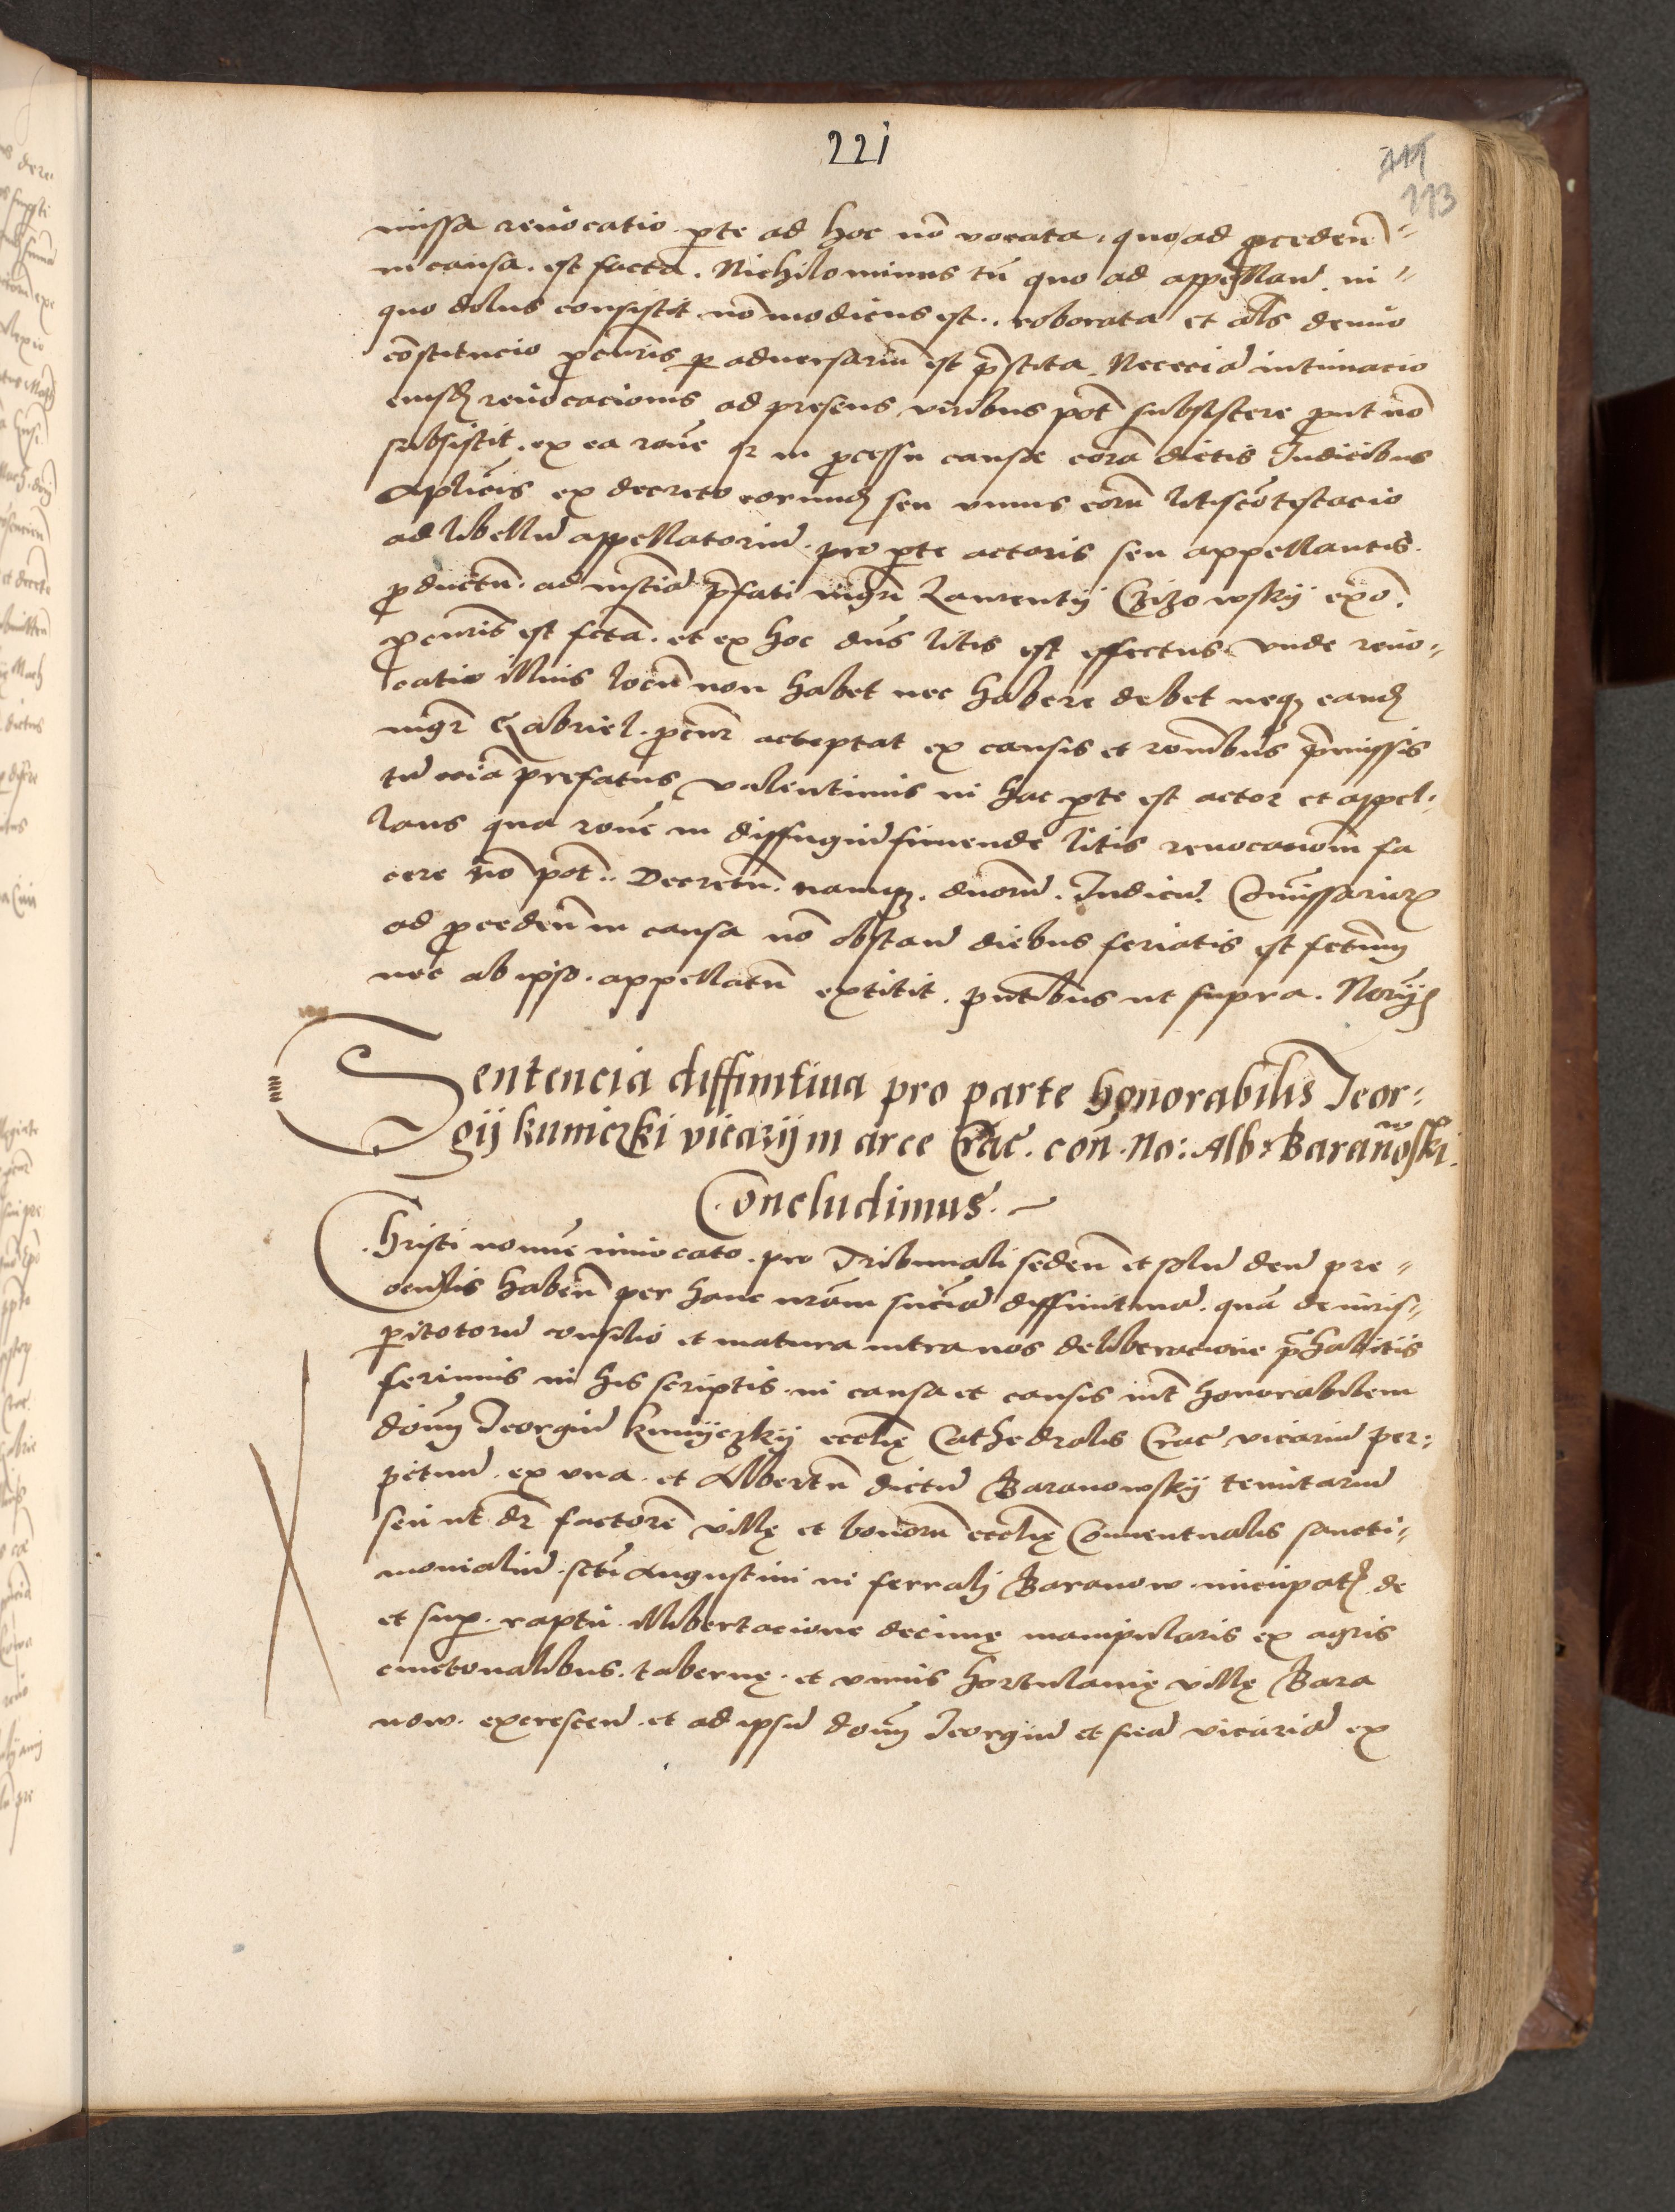 221
113
missa reuocatio pte ad hoc nō vocata, quo ad ꝓcedeñ
in causa est facta. Nichilominus tñ quo ad appellañ in
quo dolus consistit nō modicus est. roborata et als denuo
cōstitucio ꝓcuris ꝑ adversariū est p̄stita. Nec eciā intimacio
eiusdē reuocacionis ad presens viribus pōt subsistere prout nō
subsistit. ex ea rōne qr in ꝓcessu causæ corā dictis Judicibus
Aplicis ex decreto eorundē seu vnius eorū litiscōtestacio
ad libellū appellatoriū pro pte actoris seu appellantis
ꝓductū ad instciā p̄fati mgri Laurentij Czizowskij
ꝓcuris est fcta. et ex hoc dñs litis est effectus vnde reuo
catio illius locū non habet nec habere debet neqȝ eandē
mgr Gabriel ꝓcur acceptat ex causis et rōnibus p̄missis
tū eciā prefatus valentinus in hac pte est actor et appel
lans qua rōne in diffugiū finiende litis reuocacionē fa
cere nō pōt. Decretū namqȝ dnorū Judicū Comissarior
ad ꝓcedeñ in causa nō obstañ diebus feriatis est fctum
nec ab ipso appellatū extitit. pntibus ut supra.
Sentencia diffinitiua pro parte honorabilis Jeor
gij kuniczki vicarij in arce Crac. con. No: Alb: Baranowski
Concludimus.
Christi nomine inuocato pro Tribunali sedeñ et solū deū pre
oculis habeñ per hanc nrām sniciā diffinitiuā quā de iuris
peritorū consilio et matura intra nos deliberacione p̄habitis
ferimus in his scriptis in causa et causis int honorabilem
dōm Jeorgiū kunijczkij ecclię Cathedralis Crac vicariū per
petuū ex vna et Albertū dictū Baranowskij tenutariū
seu ut dr factorē villę et bonorū ecclię Conuentualis sancti
monialiū scti Augustini in ferralj Baranow nūcupatj de
et sup raptu illibertacione decimę manipularis ex agris
cmetonalibus tabernę et vnius hortulanię villę Bara
now excresceñ et ad ipsū dōm Jeorgiū et suā vicariā ex